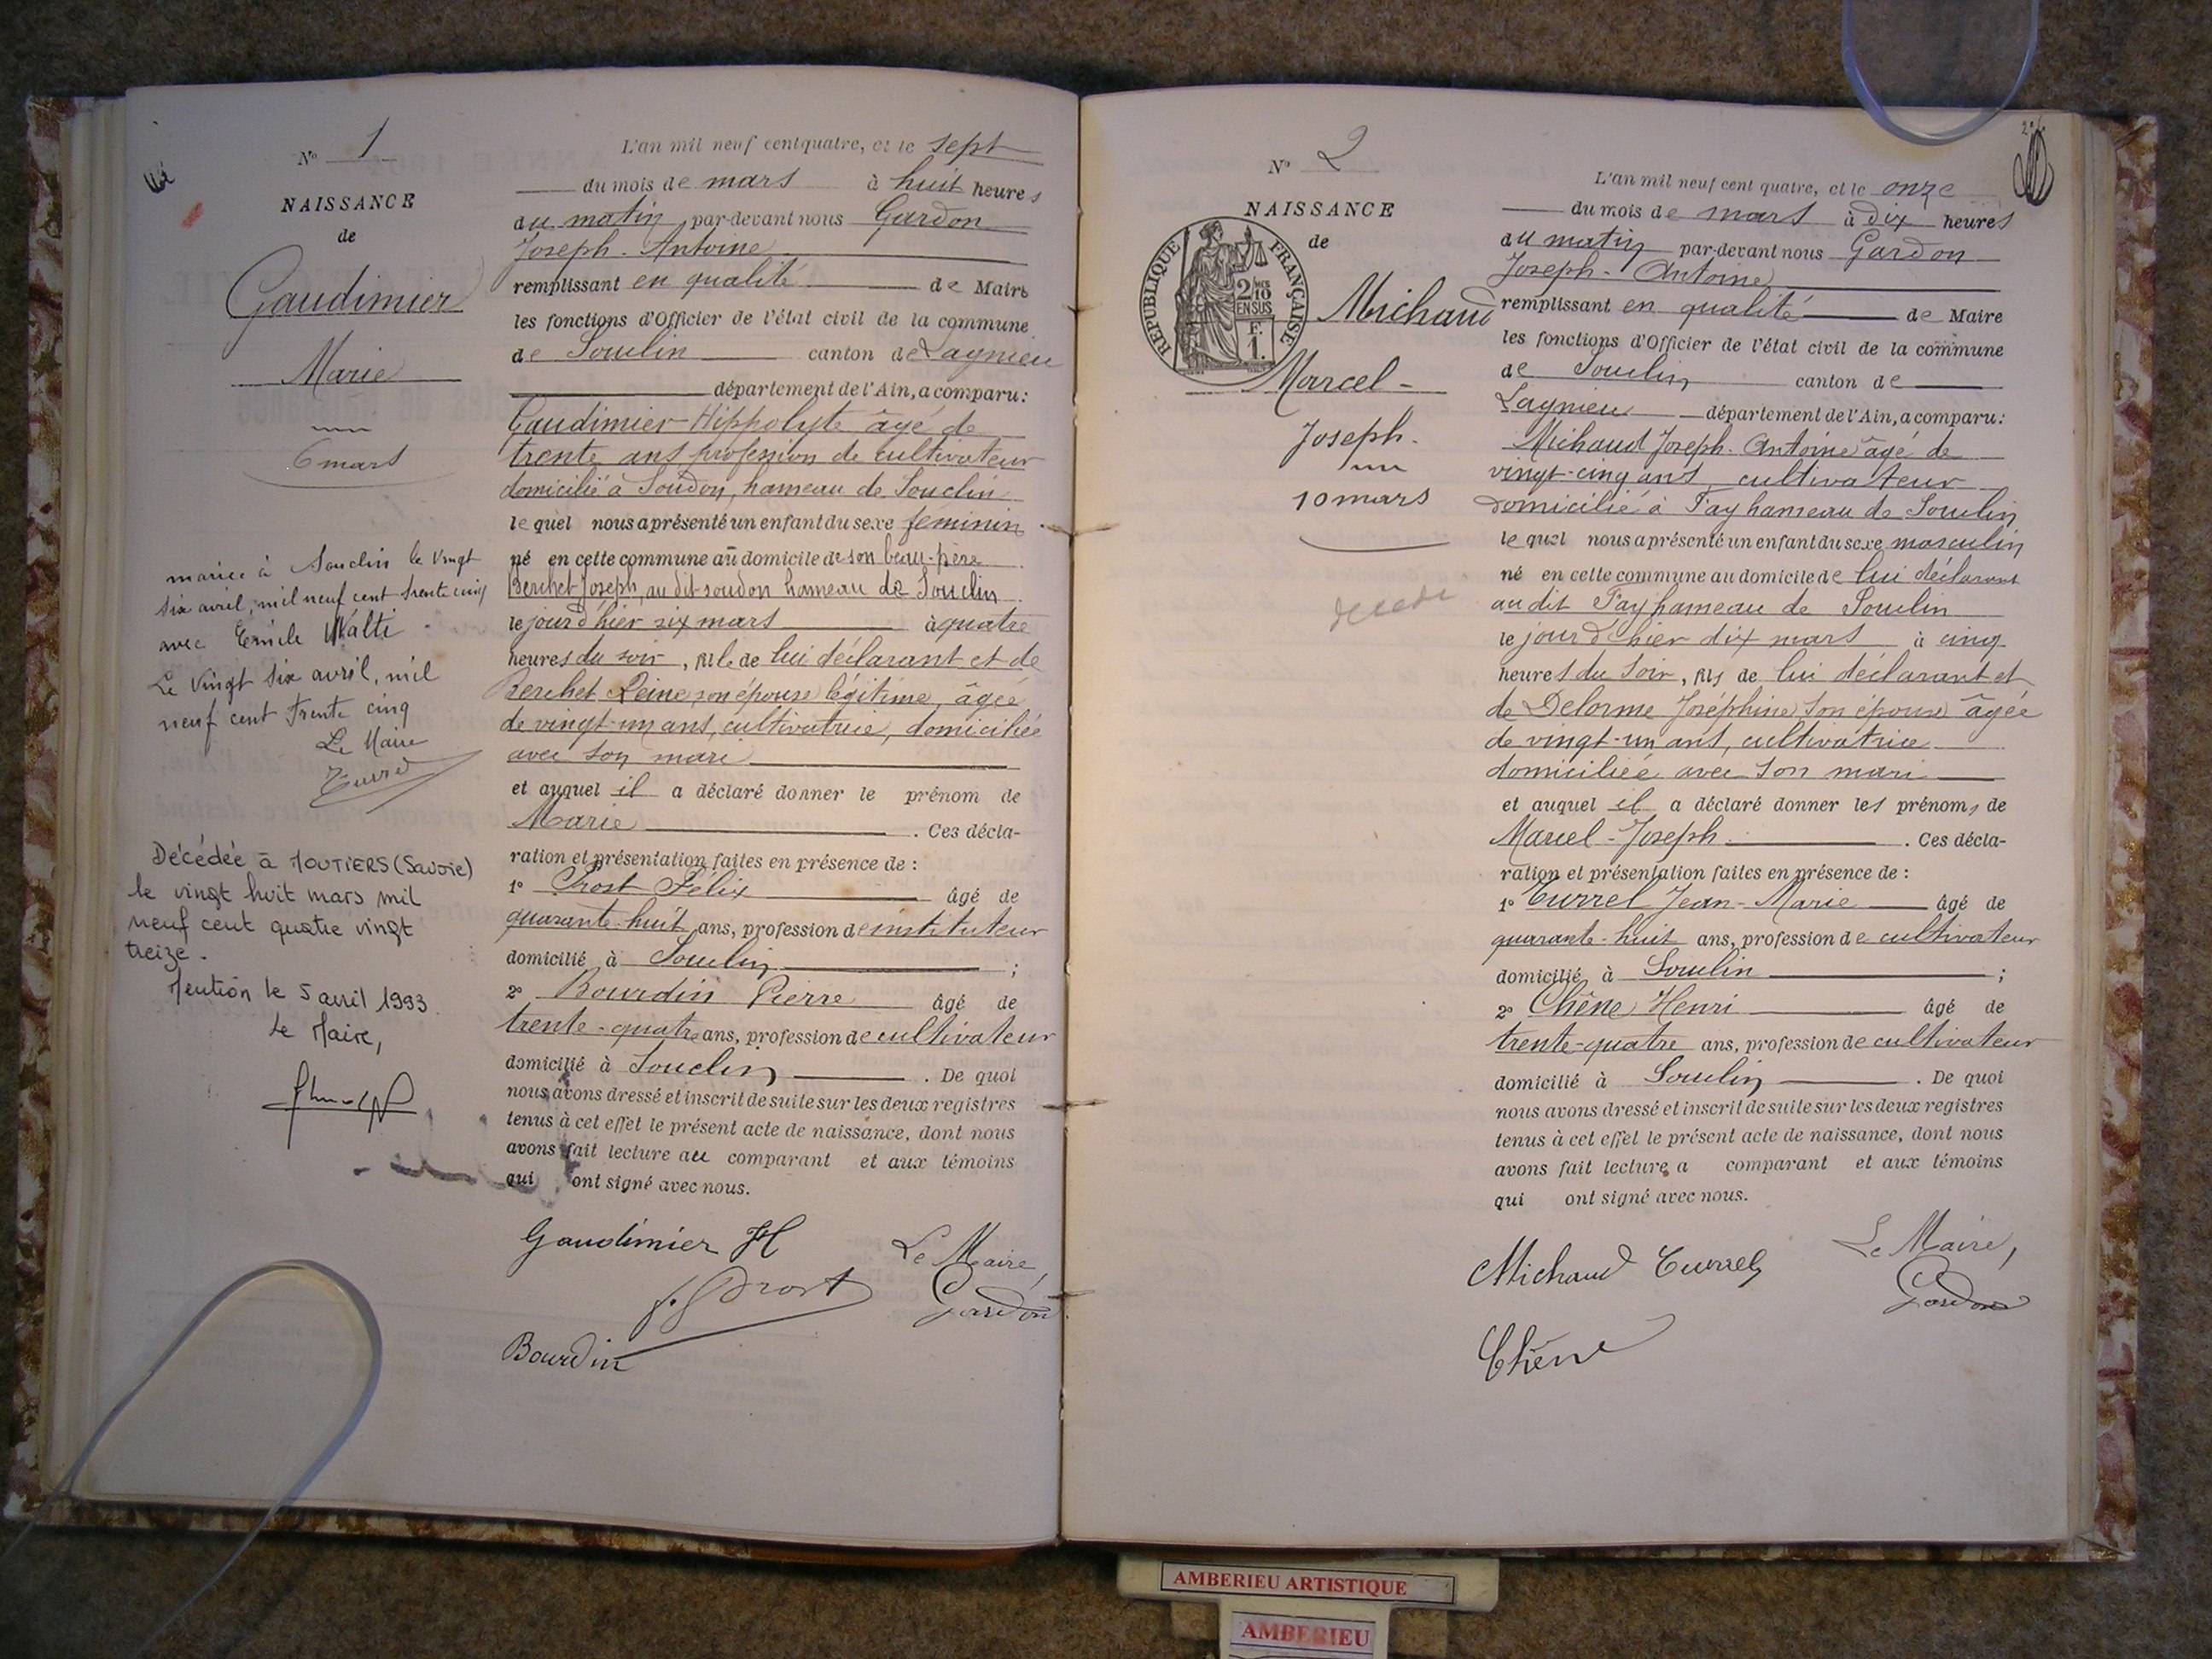 N° 1
NAISSANCE
de
Gaudimier
Marie
6 mars
mariée à Souclin le vingt
six avril, mil neuf cent trente cinq
avec Emile Wälti
Le vingt six avril, mil
neuf cent trente cinq
Le Maire
Décédée à MOUTIERS (Savoie)
le vingt huit mars mil
neuf cent quatre vingt
treize.
Mention le 5 avril 1993.
Le Maire,
L'an mil neuf cent quatre, et le sept
du mois de mars à huit heures
du matin par-devant nous Gardon
Joseph-Antoine
remplissant en qualité de Maire
les fonctions d'Officier de l'état civil de la commune
de Souclin canton de Lagnieu
département de l'Ain, a comparu:
Gaudimier Hippolyte âgé de
trente ans profession de cultivateur
domicilié à Soudon, hameau de Souclin
lequel nous a présenté un enfant du sexe féminin
né en cette commune au domicile de son beau-père
Berchet Joseph, au dit soudon hameau de Souclin
le jour d'hier six mars à quatre
heures du soir, fille de lui déclarant et de
Berchet Reine son épouse légitime, âgée
de vingt-un ans, cultivatrice, domiciliée
avec son mari
et auquel il a déclaré donner le prénom de
Marie . Ces décla-
ration et présentation faites en présence de :
1° Prost Félix âgé de
quarante-huit ans, profession de instituteur
domicilié à Souclin ;
2° Bourdin Pierre âgé de
trente-quatre ans, profession de cultivateur
domicilié à Souclin . De quoi
nous avons dressé et inscrit de suite sur les deux registres
tenus à cet effet le présent acte de naissance, dont nous
avons fait lecture au comparant et aux témoins
qui ont signé avec nous.
Gaudimier H
Le Maire,
Prost
Gardon
Bourdin
N° 2
NAISSANCE
de
RÉPUBLIQUE FRANÇAISE
2/10 EN SUS
F. 1.
Michaud
Marcel-
Joseph.
10 mars
décédé
L'an mil neuf cent quatre, et le onze
du mois de mars à dix heures
du matin par-devant nous Gardon
Joseph-Antoine
remplissant en qualité de Maire
les fonctions d'Officier de l'état civil de la commune
de Souclin canton de
Lagnieu département de l'Ain, a comparu:
Michaud Joseph-Antoine âgé de
vingt-cinq ans, cultivateur
domicilié à Fay hameau de Souclin
lequel nous a présenté un enfant du sexe masculin
né en cette commune au domicile de lui déclarant
au dit Fay hameau de Souclin
le jour d'hier dix mars à cinq
heures du soir, fils de lui déclarant et
de Delorme Joséphine son épouse âgée
de vingt-un ans, cultivatrice
domiciliée avec son mari
et auquel il a déclaré donner les prénoms de
Marcel-Joseph . Ces décla-
ration et présentation faites en présence de :
1° Turrel Jean-Marie âgé de
quarante-huit ans, profession de cultivateur
domicilié à Souclin ;
2° Chêne Henri âgé de
trente-quatre ans, profession de cultivateur
domicilié à Souclin . De quoi
nous avons dressé et inscrit de suite sur les deux registres
tenus à cet effet le présent acte de naissance, dont nous
avons fait lecture a comparant et aux témoins
qui ont signé avec nous.
Michaud Turrel
Le Maire,
Gardon
Chêne
AMBERIEU ARTISTIQUE
AMBERIEU